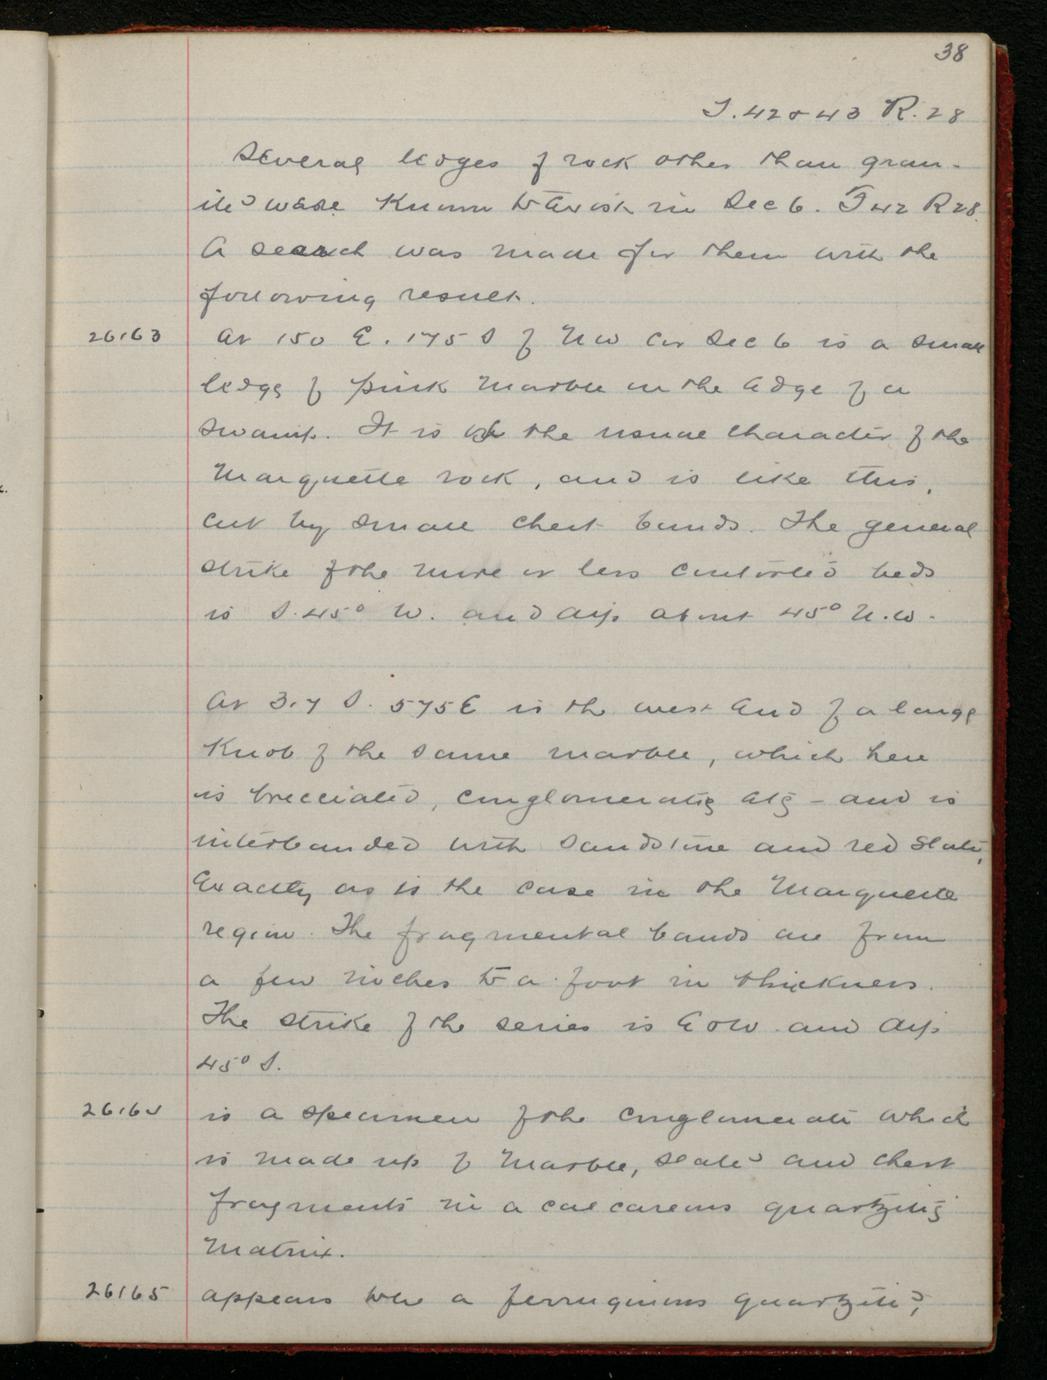 38
T. 42 & 43 R. 28
Several ledges of rock other than gran-
ite were known to exist in Sec 6. T 42 R 28.
A search was made for them with the
following result.
26163 At 150 E. 175 S of NW Cor Sec 6 is a small
ledge of pink marble on the edge of a
swamp. It is of the usual character of the
Marquette rock, and is like this,
cut by small chert bands. The general
strike of the more or less contorted beds
is S. 45° W. and dip about 45° N.W.
At S. 575 E is the west end of a large
Knob of the same marble, which here
is brecciated, conglomeratic etc - and is
interbanded with sandstone and red slate,
Exactly as is the case in the Marquette
region. The fragmental bands are from
a few inches to a foot in thickness.
The strike of the series is E & W. and dip
45° S.
26164 is a specimen of the conglomerate which
is made up of marble, slate and chert
fragments in a calcareous quartzitic
matrix.
26165 appears to be a ferruginous quartzite,